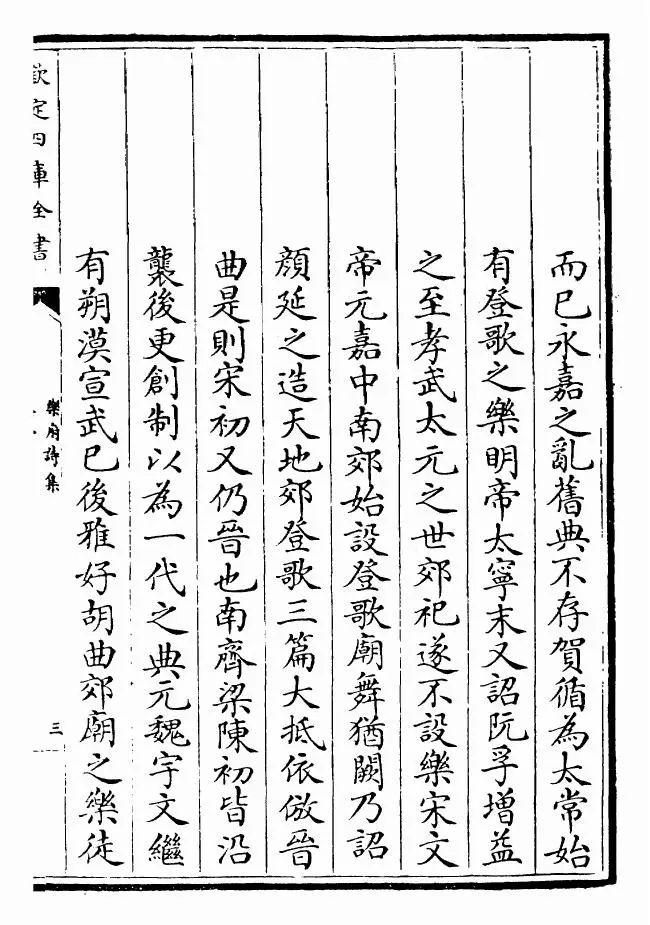 而已永嘉之亂舊典不存賀循為太常始
有登歌之樂明帝太寧末又詔阮孚增益
之至孝武太元之世郊祀遂不設樂宋文
帝元嘉中南郊始設登歌廟舞猶闕乃詔
顔延之造天地郊登歌三篇大抵依倣晉
曲是則宋初又仍晉也南齊梁陳初皆沿
襲後更創制以為一代之典元魏宇文繼
有朔漠宣武已後雅好胡曲郊廟之樂徒
欽定四庫全書
樂府詩集
三